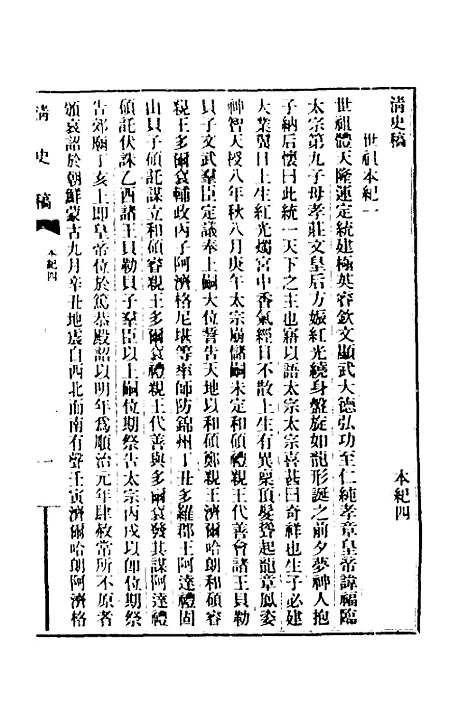 清史稿
本紀四
世祖本紀一
世祖體天隆運定統建極英睿欽文顯武大德弘功至仁純孝章皇帝諱福臨
太宗第九子母孝莊文皇后方娠紅光繞身盤旋如龍形誕之前夕夢神人抱
子納后懷曰此統一天下之主也寤以語太宗太宗喜甚曰奇祥也生子必建
大業翼日上生紅光燭宮中香氣經日不散上生有異稟頂髮聳起龍章鳳姿
神智天授八年秋八月庚午太宗崩儲嗣未定和碩禮親王代善會諸王貝勒
貝子文武羣臣定議奉上嗣大位誓告天地以和碩鄭親王濟爾哈朗和碩睿
親王多爾袞輔政丙子阿濟格尼堪等率師防錦州丁丑多羅郡王阿達禮固
山貝子碩託謀立和碩睿親王多爾袞禮親王代善與多爾袞發其謀阿達禮
碩託伏誅乙酉諸王貝勒貝子羣臣以上嗣位期祭告太宗丙戌以卽位期祭
告郊廟丁亥上卽皇帝位於篤恭殿詔以明年爲順治元年肆赦常所不原者
頒哀詔於朝鮮蒙古九月辛丑地震自西北而南有聲壬寅濟爾哈朗阿濟格
清史稿
本紀四
一